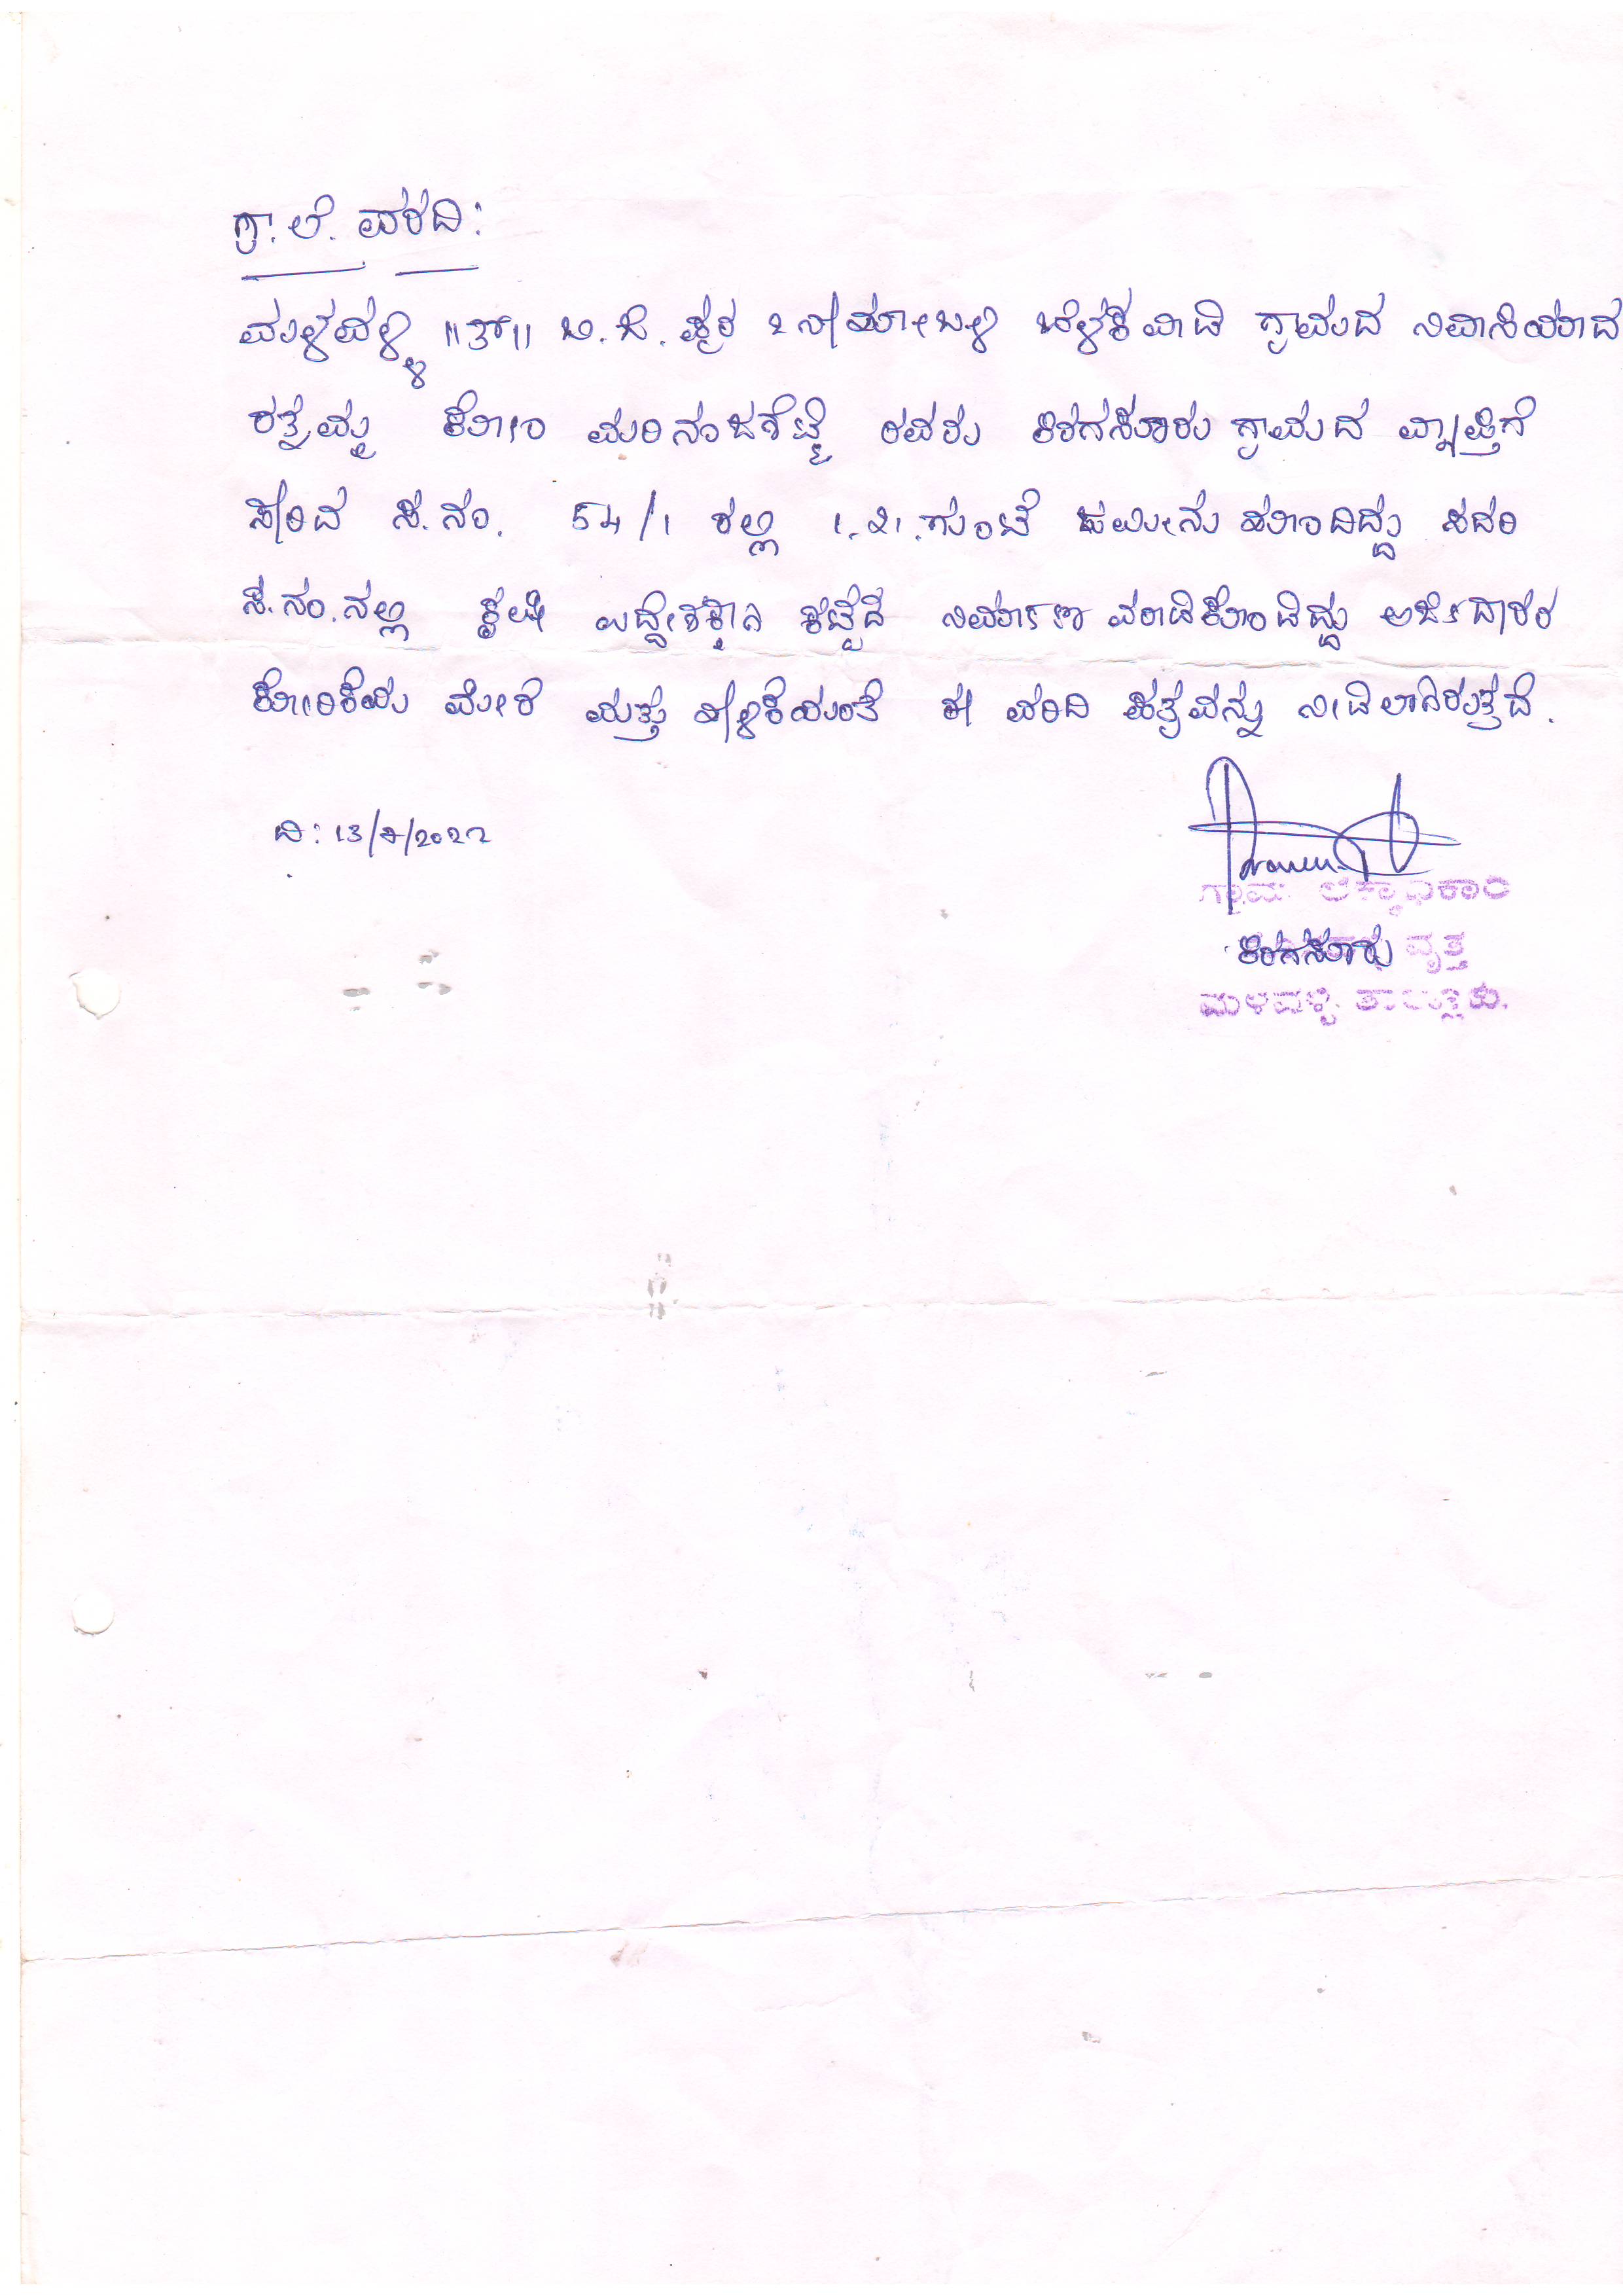 ಗ್ರಾ. ಲೆ. ವರದಿ:
ಮಳವಳ್ಳಿ ॥ತಾ॥ ಬಿ.ಜಿ. ಪುರ 2ನೇ ಹೋಬಳಿ ಬೆಳಕವಾಡಿ ಗ್ರಾಮದ ನಿವಾಸಿಯಾದ
ರತ್ನಮ್ಮ ಕೋಂ ಮರಿನಂಜಶೆಟ್ಟಿ ರವರು ಕಿರಗಸೂರು ಗ್ರಾಮದ ವ್ಯಾಪ್ತಿಗೆ
ಸೇರಿದ ಸ.ನಂ. 54/1 ರಲ್ಲಿ 1.21.ಗುಂಟೆ ಜಮೀನು ಹೊಂದಿದ್ದು ಸದರಿ
ಸ.ನಂ.ನಲ್ಲಿ ಕೃಷಿ ಉದ್ದೇಶಕ್ಕಾಗಿ ಕಟ್ಟಡ ನಿರ್ಮಾಣ ಮಾಡಿಕೊಂಡಿದ್ದು ಅರ್ಜಿದಾರರ
ಕೋರಿಕೆಯ ಮೇರೆ ಮತ್ತು ಹೇಳಿಕೆಯಂತೆ ಈ ವರದಿ ಪತ್ರವನ್ನು ನೀಡಲಾಗಿರುತ್ತದೆ.
ದಿ:
ಗ್ರಾಮ ಲೆಕ್ಕಾಧಿಕಾರಿ
ಕಿರಗಸೂರು ವೃತ್ತ
ಮಳವಳ್ಳಿ ತಾಲ್ಲೂಕು.